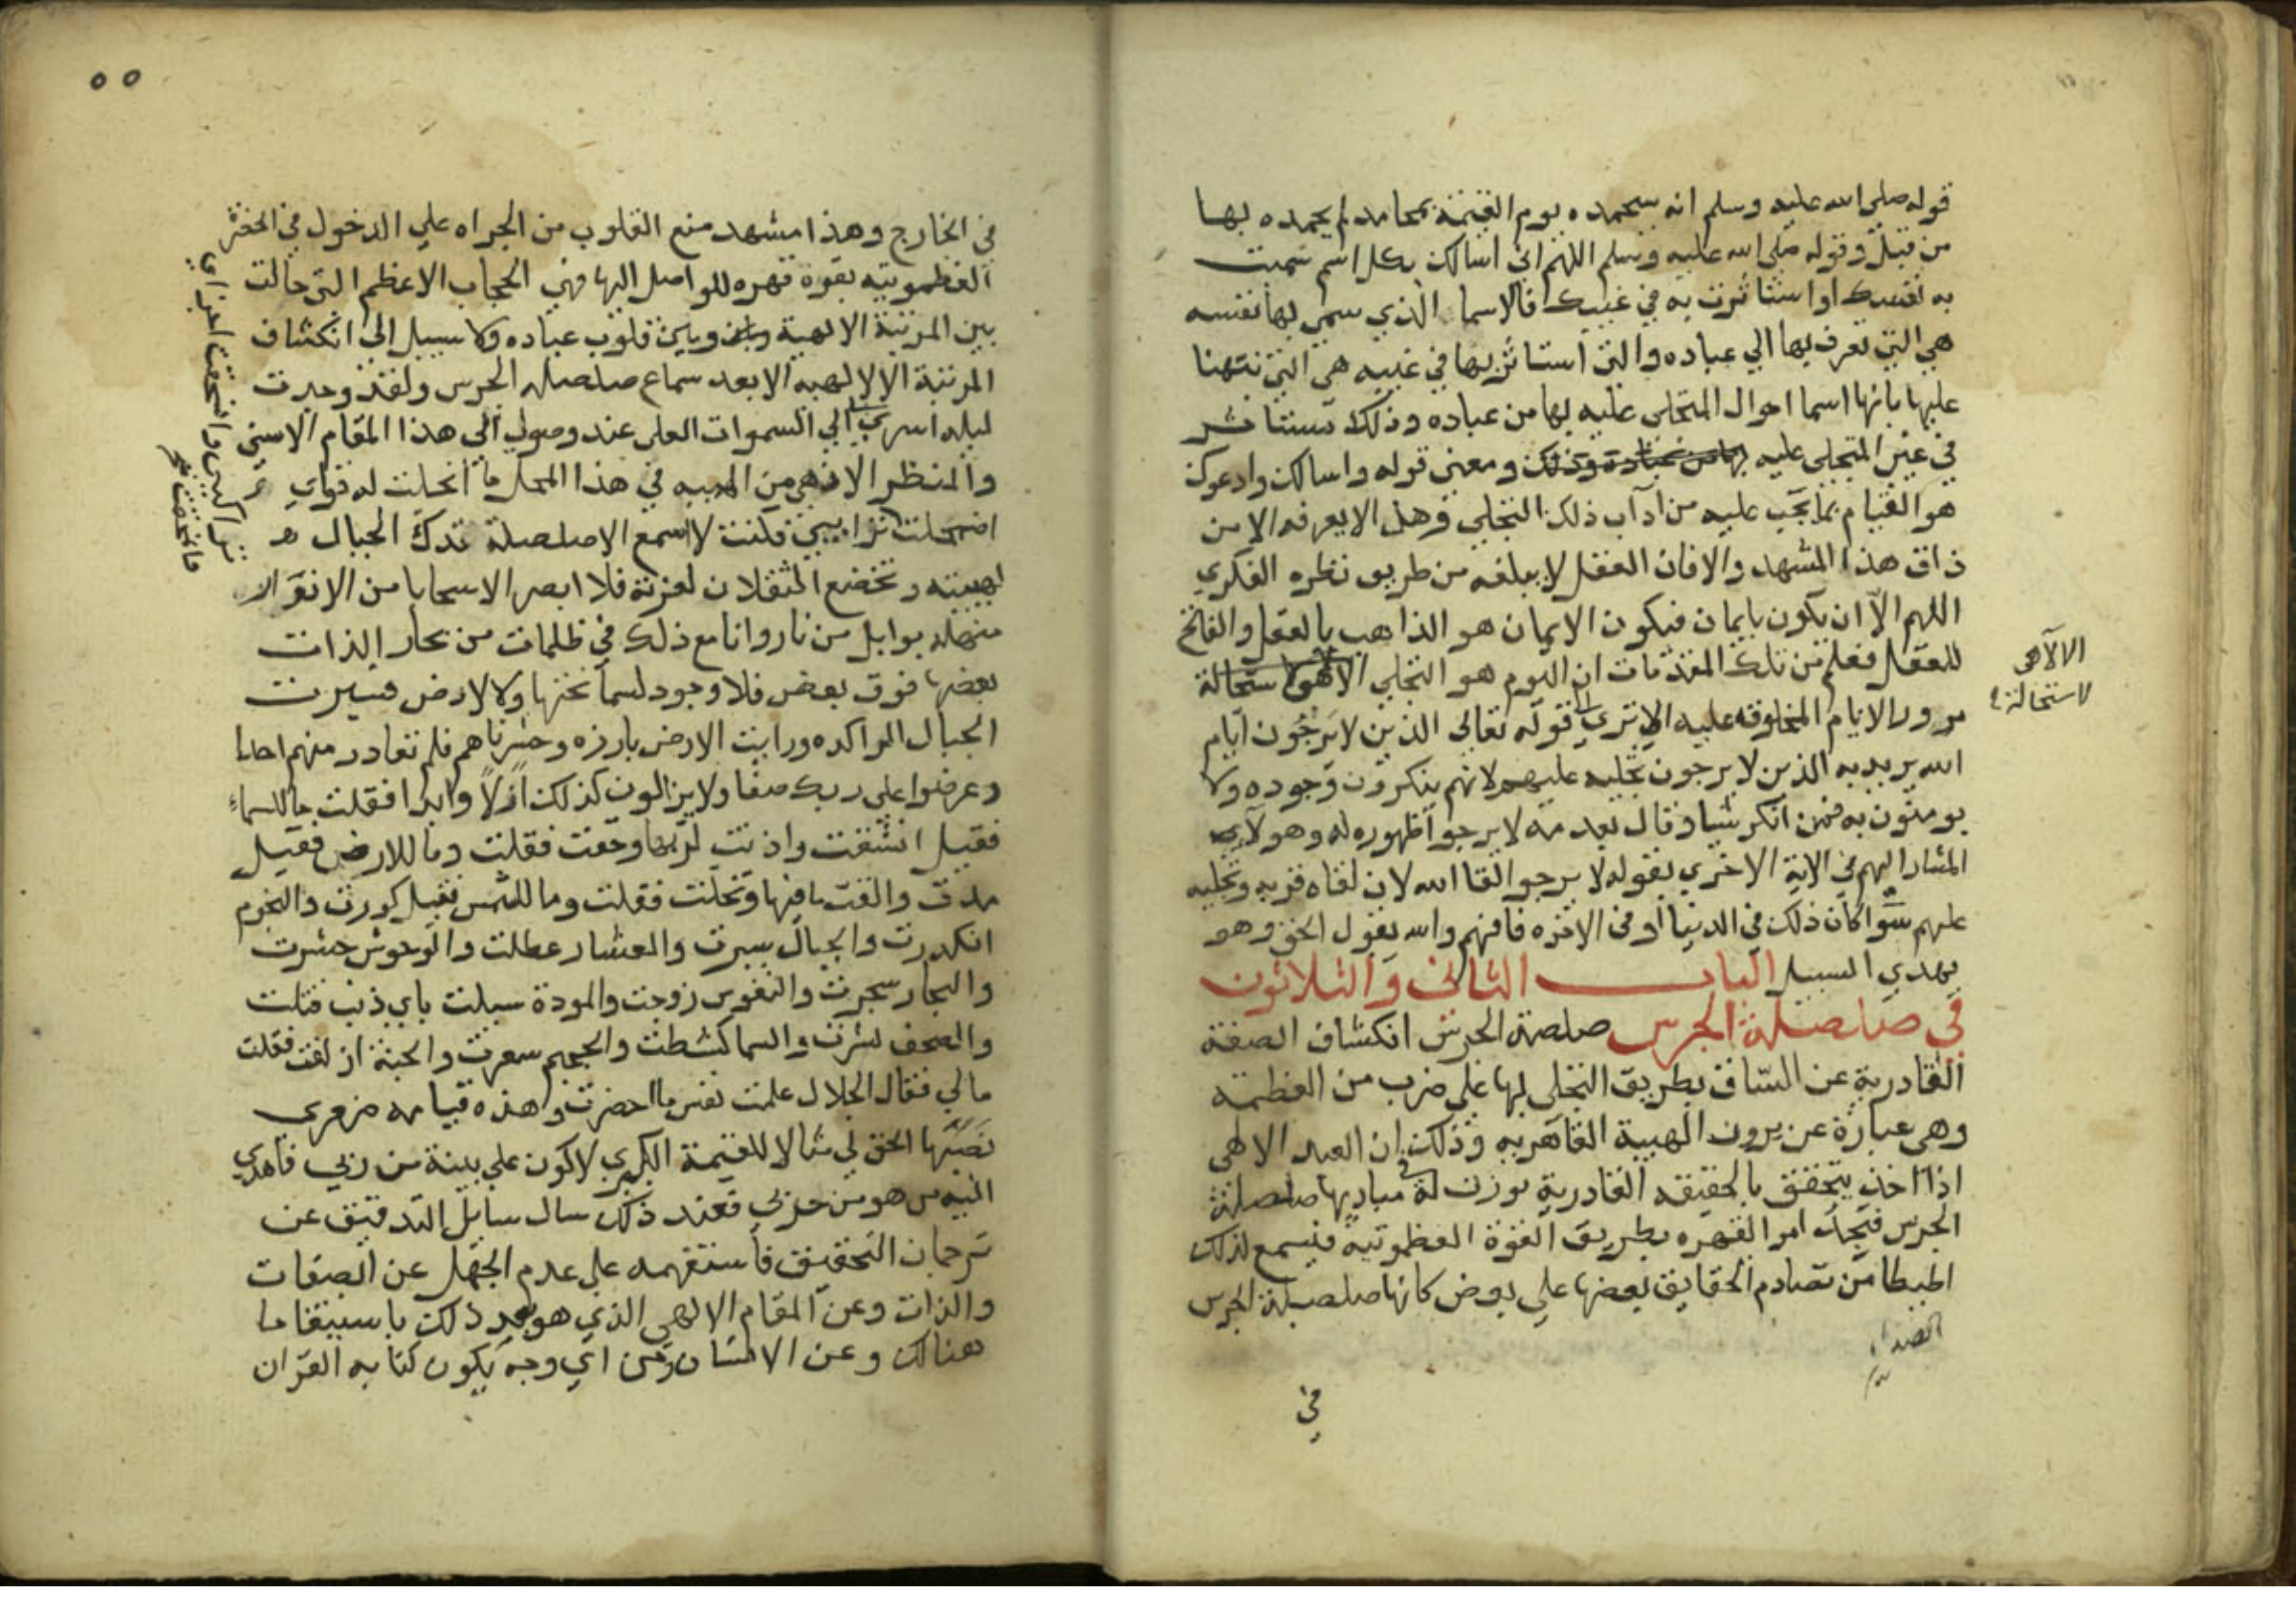 قوله صلى الله عليه وسلم انه سيحمده يوم القيمة بمحامد لم يحمده بها
من قبل وقوله صلى الله عليه وسلم اللهم انى اسالك بكل اسم سميت
به نفسك او استاثرت به في غيبك فالاسما الذي سمى بها نفسه
هي التي تعرف بها الي عباده والتى استاثر بها في غيبه هي التي نبهنا
عليها بانها اسما احوال المتجلى عليه بها من عباده وذلك مستتاثر
في غير المتجلى عليه بها من عباده وذلك ومعنى قوله واسالك وادعوك
هو القيام بما يجب عليه من اداب ذلك التجلي وهل الا يعرفه الا من
ذاق هذا المشهد والا فان العقل لا يبلغه من طريق نظره الفكري
اللهم الا ان يكون بايمان فيكون الايمان هو الذاهب بالعقل والفاتح
للعقل فعلم من تلك المقدمات ان اليوم هو التجلي الالهى استحالة
الالآهى
لاستحالة
مرور الايام المخلوقه عليه الا ترى الى قوله تعالى الذين لا يرجون ايام
الله يريد به الذين لا يرجون تجليه عليهم لانهم ينكرون وجوده ولا
يومنون به فمن انكر شيا وقال بعدمه لا يرجوا ظهوره له وهولآء
المشار اليهم في الاية الاخري بقوله لا يرجوا لقا الله لان لقاه قربه وتجليه
عليهم سوا كان ذلك في الدنيا او فى الاخره فافهم والله يقول الحق وهو
يهدي السبيل الباب الثانى والثلاثون
في صلصلة الجرس صلصة الجرس انكشاف الصفة
القادرية عن الساق بطريق التجلى لها على ضرب من العظمه
وهى عبارة عن برون الهيبة القاهريه وذلك ان العبد الالهى
اذا اخذ يتحقق بالحقيقه القادرية بوزت له في مباديها صلصلة
الجرس فيجد امرا لقهره بطريق القوة العظموتية فيسمع لذلك
اطيطا من تصادم الحقايق بعضها على بعض كانها صلصلة الجرس
في
٥٥
في الخارج وهذا مشهد منع القلوب من الجراه علي الدخول في الحضرة
العظموتيه بقوة قهره للواصل اليها فهي الحجاب الاعظم التي حالت
بين المرتبة الالهية وبين قلوب عباده ولا سبيل الى انكشاف
المرتبة الالالهيه الا بعد سماع صلصله الجرس ولقد وجدت
ليله اسري بي الي السموات العلى عند وصولي الي هذا المقام الاسنى
والمنظر الازهى من الهيبه في هذا المحل ما انحلت له قواي
اضمحلت تراكيبي فكنت لا اسمع الا صلصلة تدك الجبال
لهيبته وتخضع الثقلان لعزته فلا ابصر الا سحابا من الانوار
منهله بوابل من نار وانا مع ذلك في ظلمات من بحار الذات
بعضها فوق بعض فلا وجود لسما تحتها ولا لارض فسيرت
الجبال الراكده ورايت الارض بارزه وحشرناهم فلم نغادر منهم احدا
وعرضوا على ربك صفا ولا يزالون كذلك ازلاً وابدا فقلت ما للسماء
فقيل انشقت واذنت لربها وحقت فقلت وما للارض فقيل
مدت والقت ما فيها وتخلت فقلت وما للشمس فقيل كورت والنجوم
انكدرت والجبال سيرت والعشار عطلت والوحوش حشرت
والبحار سجرت والنفوس زوجت والمودة سيلت باي ذنب قتلت
والصحف نشرت والسما كشطت والجحيم سعرت والجنة ازلفت فقلت
مالي فقال الجلال علمت نفس ما احضرت وهذه قيامه صغرى
نصبها الحق لي مثالا للقيمة الكبري لاكون علي بينة من ربي فاهدي
اليه من هو من حزبي فعند ذلك سال سايل التدقيق عن
ترجمان التحقيق فاستفهمه علي عدم الجهل عن الصفات
والذات وعن المقام الالهي الذي هو بعد ذلك باسبيقا ما
هنالك وعن الانسان ومن اي وجه يكون كتابه القران